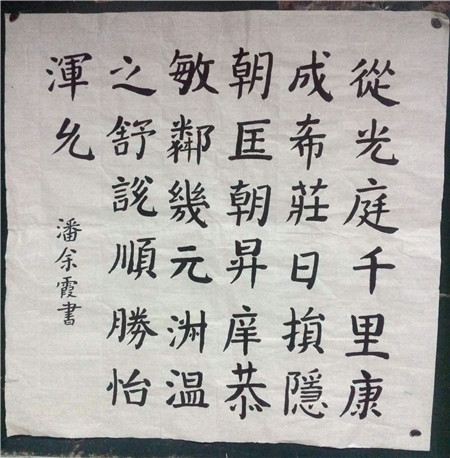 從光庭千里康
成希莊日損隱
朝匡朝昇庠恭
敏鄰幾元洲温
之舒説順勝怡
渾允
潘余霞書